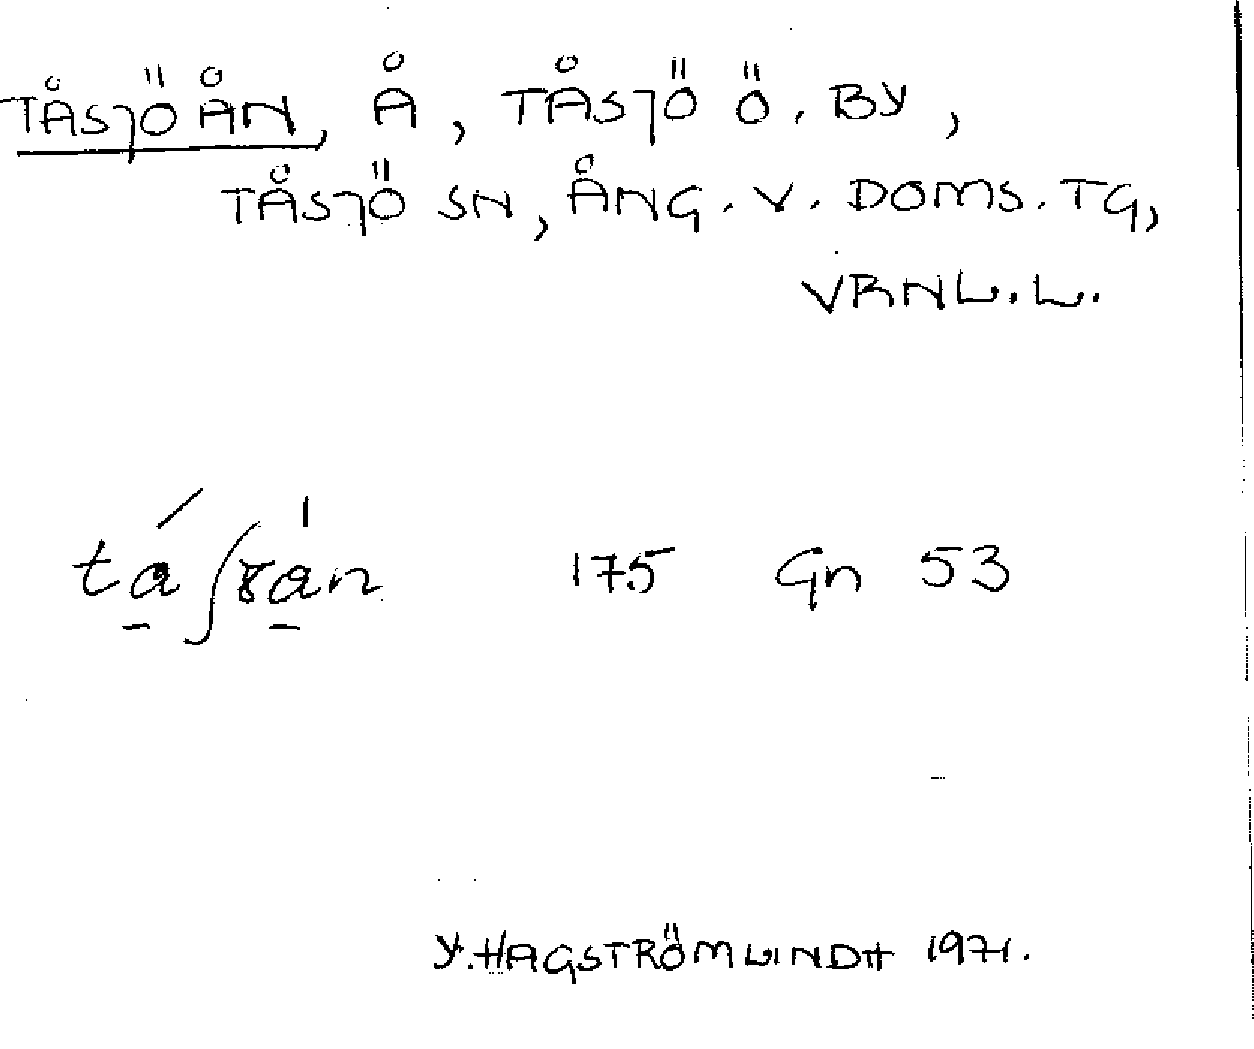 TÅSJÖÅN, Å, TÅSJÖ Ö. BY,
TÅSJÖ SN, ÅNG. V. DOMS. TG,
VRNL. L.
175 Gn 53
Y. HAGSTRÖM LINDH 1971.